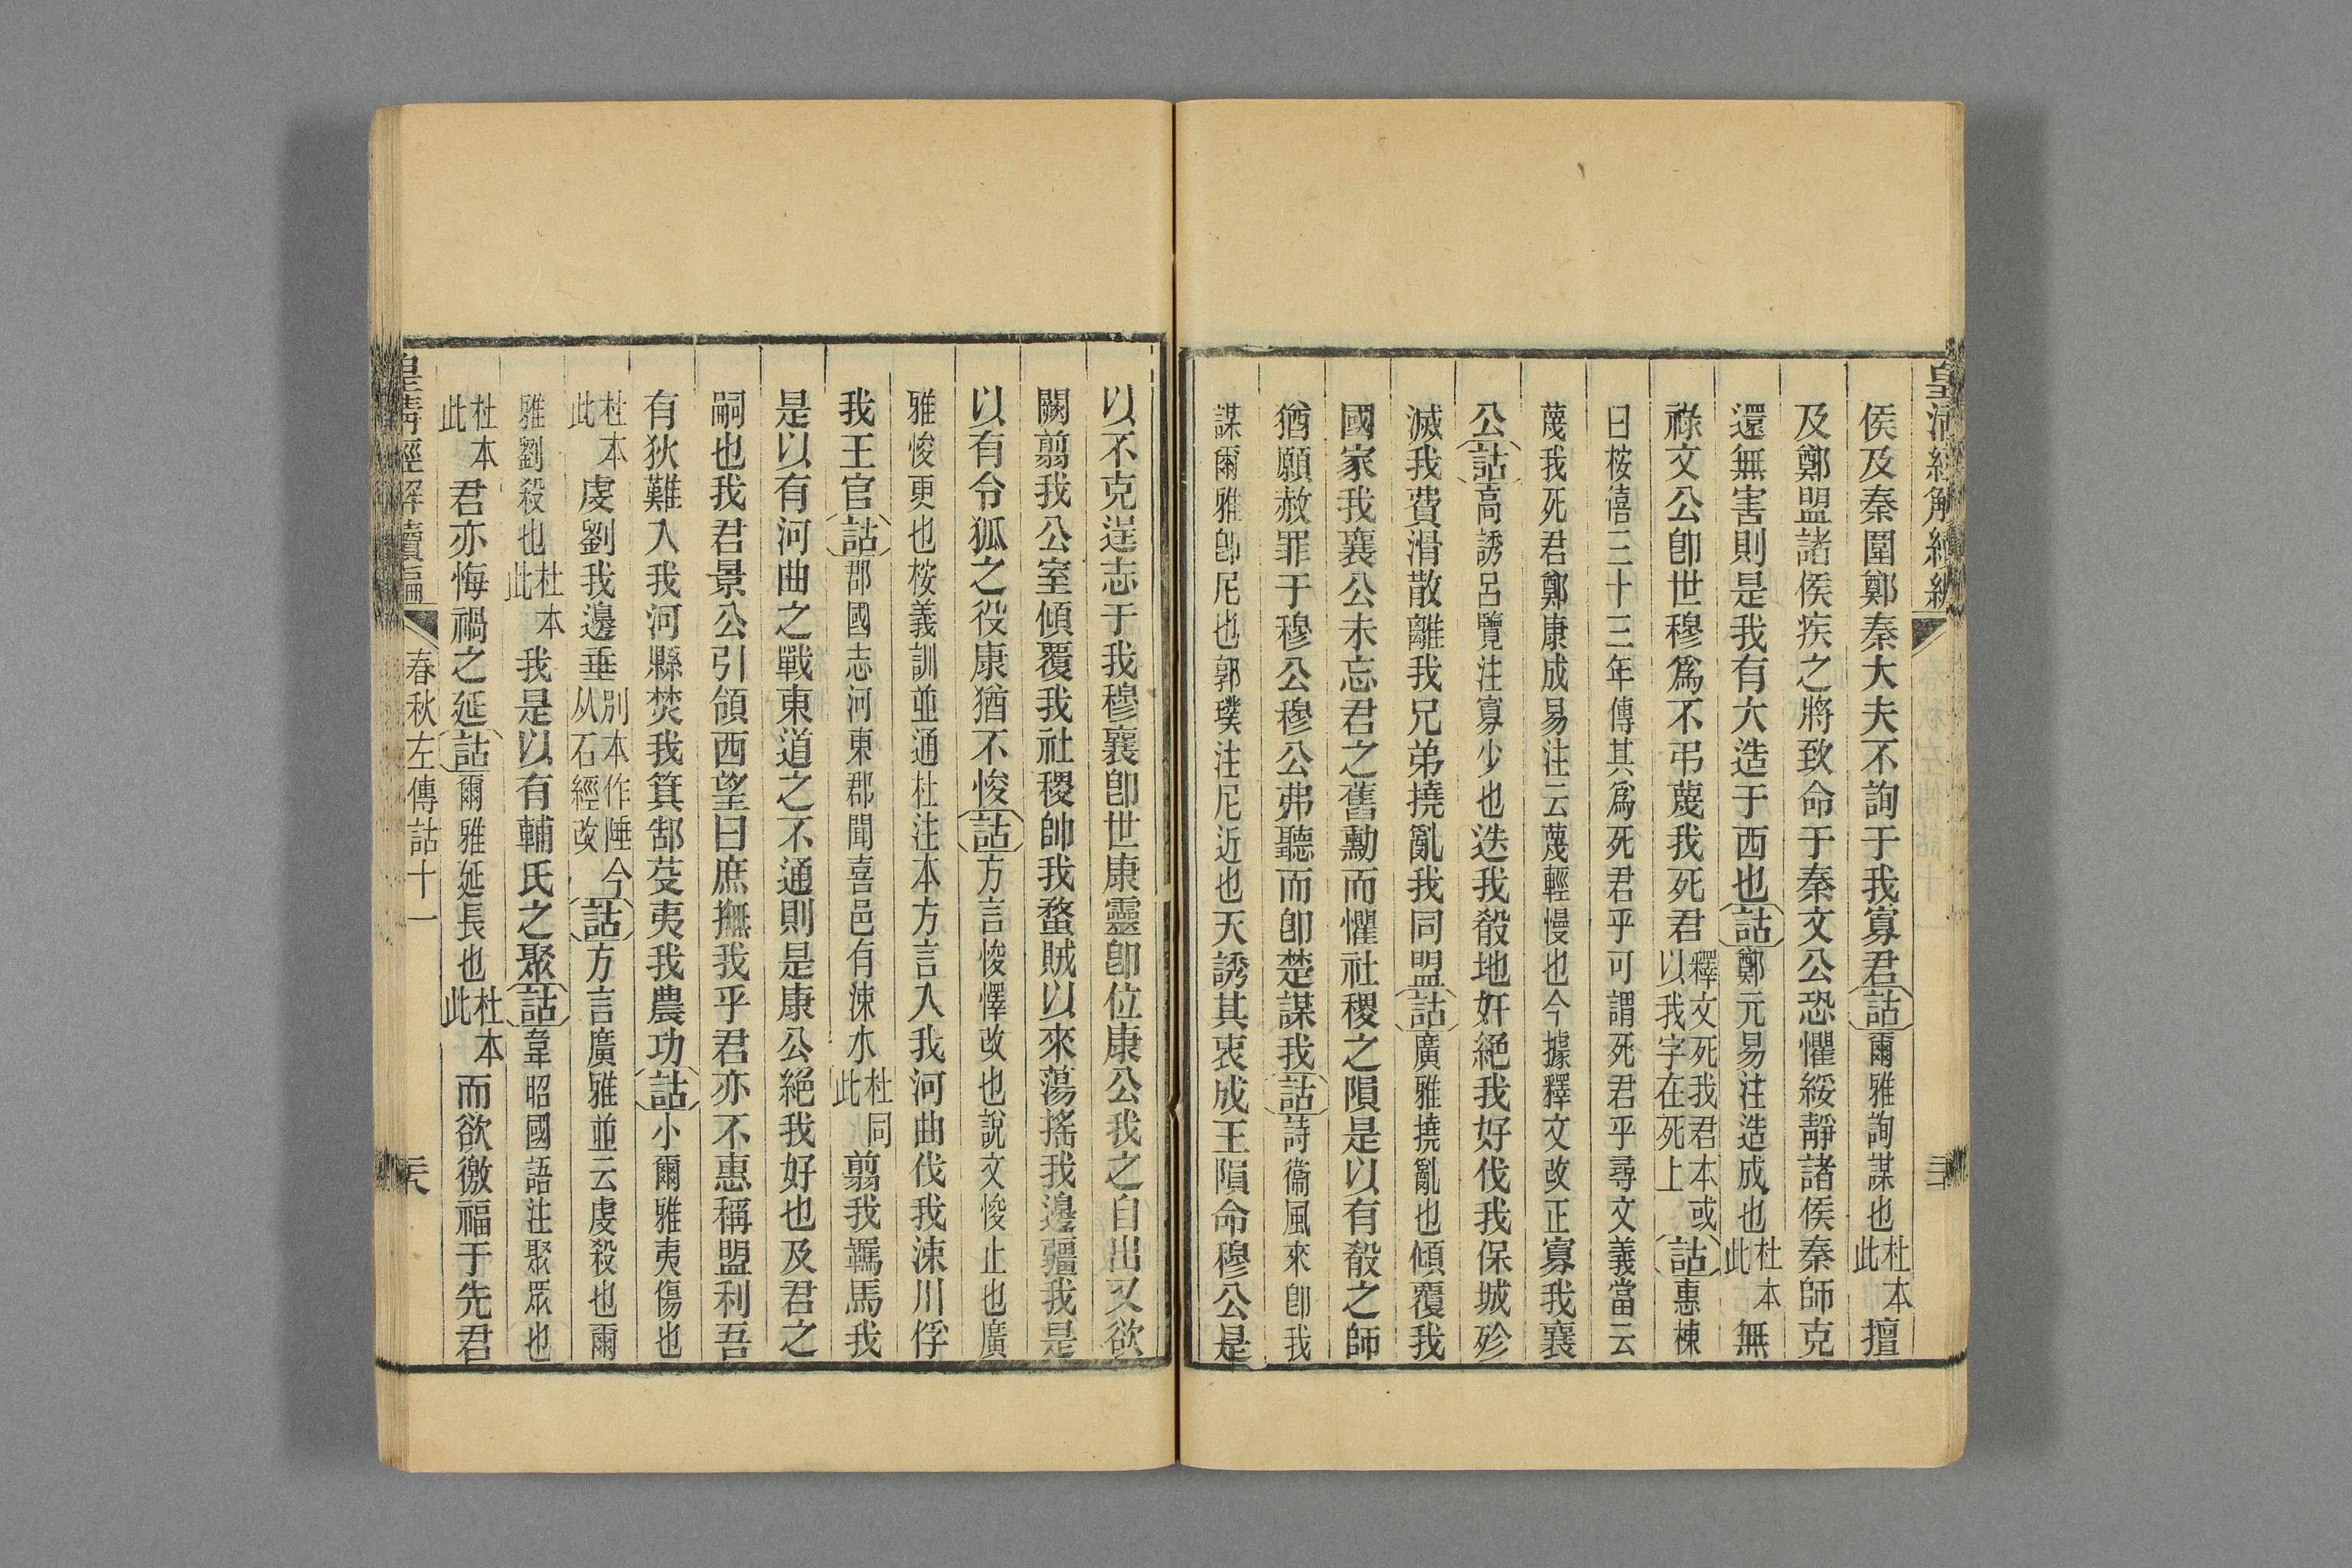 侯及秦圍鄭秦大夫不詢于我寡君詁爾雅詢謀也杜本此擅
及鄭盟諸侯疾之將致命于秦文公恐懼綏靜諸侯秦師克
還無害則是我有大造于西也詁鄭元易注造成也杜本此無
祿文公卽世穆爲不弔蔑我死君釋文死我君本或以我字在死上詁惠棟
曰桉僖三十三年傳其爲死君乎可謂死君乎尋文義當云
蔑我死君鄭康成易注云蔑輕慢也今據釋文改正寡我襄
公詁高誘呂覽注寡少也迭我殽地奸絕我好伐我保城殄
滅我費滑散離我兄弟撓亂我同盟詁廣雅撓亂也傾覆我
國家我襄公未忘君之舊勳而懼社稷之隕是以有殽之師
猶願赦罪于穆公穆公弗聽而卽楚謀我詁詩衞風來卽我
謀爾雅卽尼也郭璞注尼近也天誘其衷成王隕命穆公是
以不克逞志于我穆襄卽世康靈卽位康公我之自出又欲
闕翦我公室傾覆我社稷帥我蝥賊以來蕩搖我邊疆我是
以有令狐之役康猶不悛詁方言悛懌改也說文悛止也廣
雅悛更也桉義訓並通杜注本方言入我河曲伐我涑川俘
我王官詁郡國志河東郡聞喜邑有涑水杜同此翦我羈馬我
是以有河曲之戰東道之不通則是康公絕我好也及君之
嗣也我君景公引領西望曰庶撫我乎君亦不惠稱盟利吾
有狄難入我河縣焚我箕郜芟夷我農功詁小爾雅夷傷也
杜本此虔劉我邊垂別本作陲今从石經改詁方言廣雅並云虔殺也爾
雅劉殺也杜本此我是以有輔氏之聚詁韋昭國語注聚眾也
杜本此君亦悔禍之延詁爾雅延長也杜本此而欲徼福于先君
皇清經解續編 春秋左傳詁十一